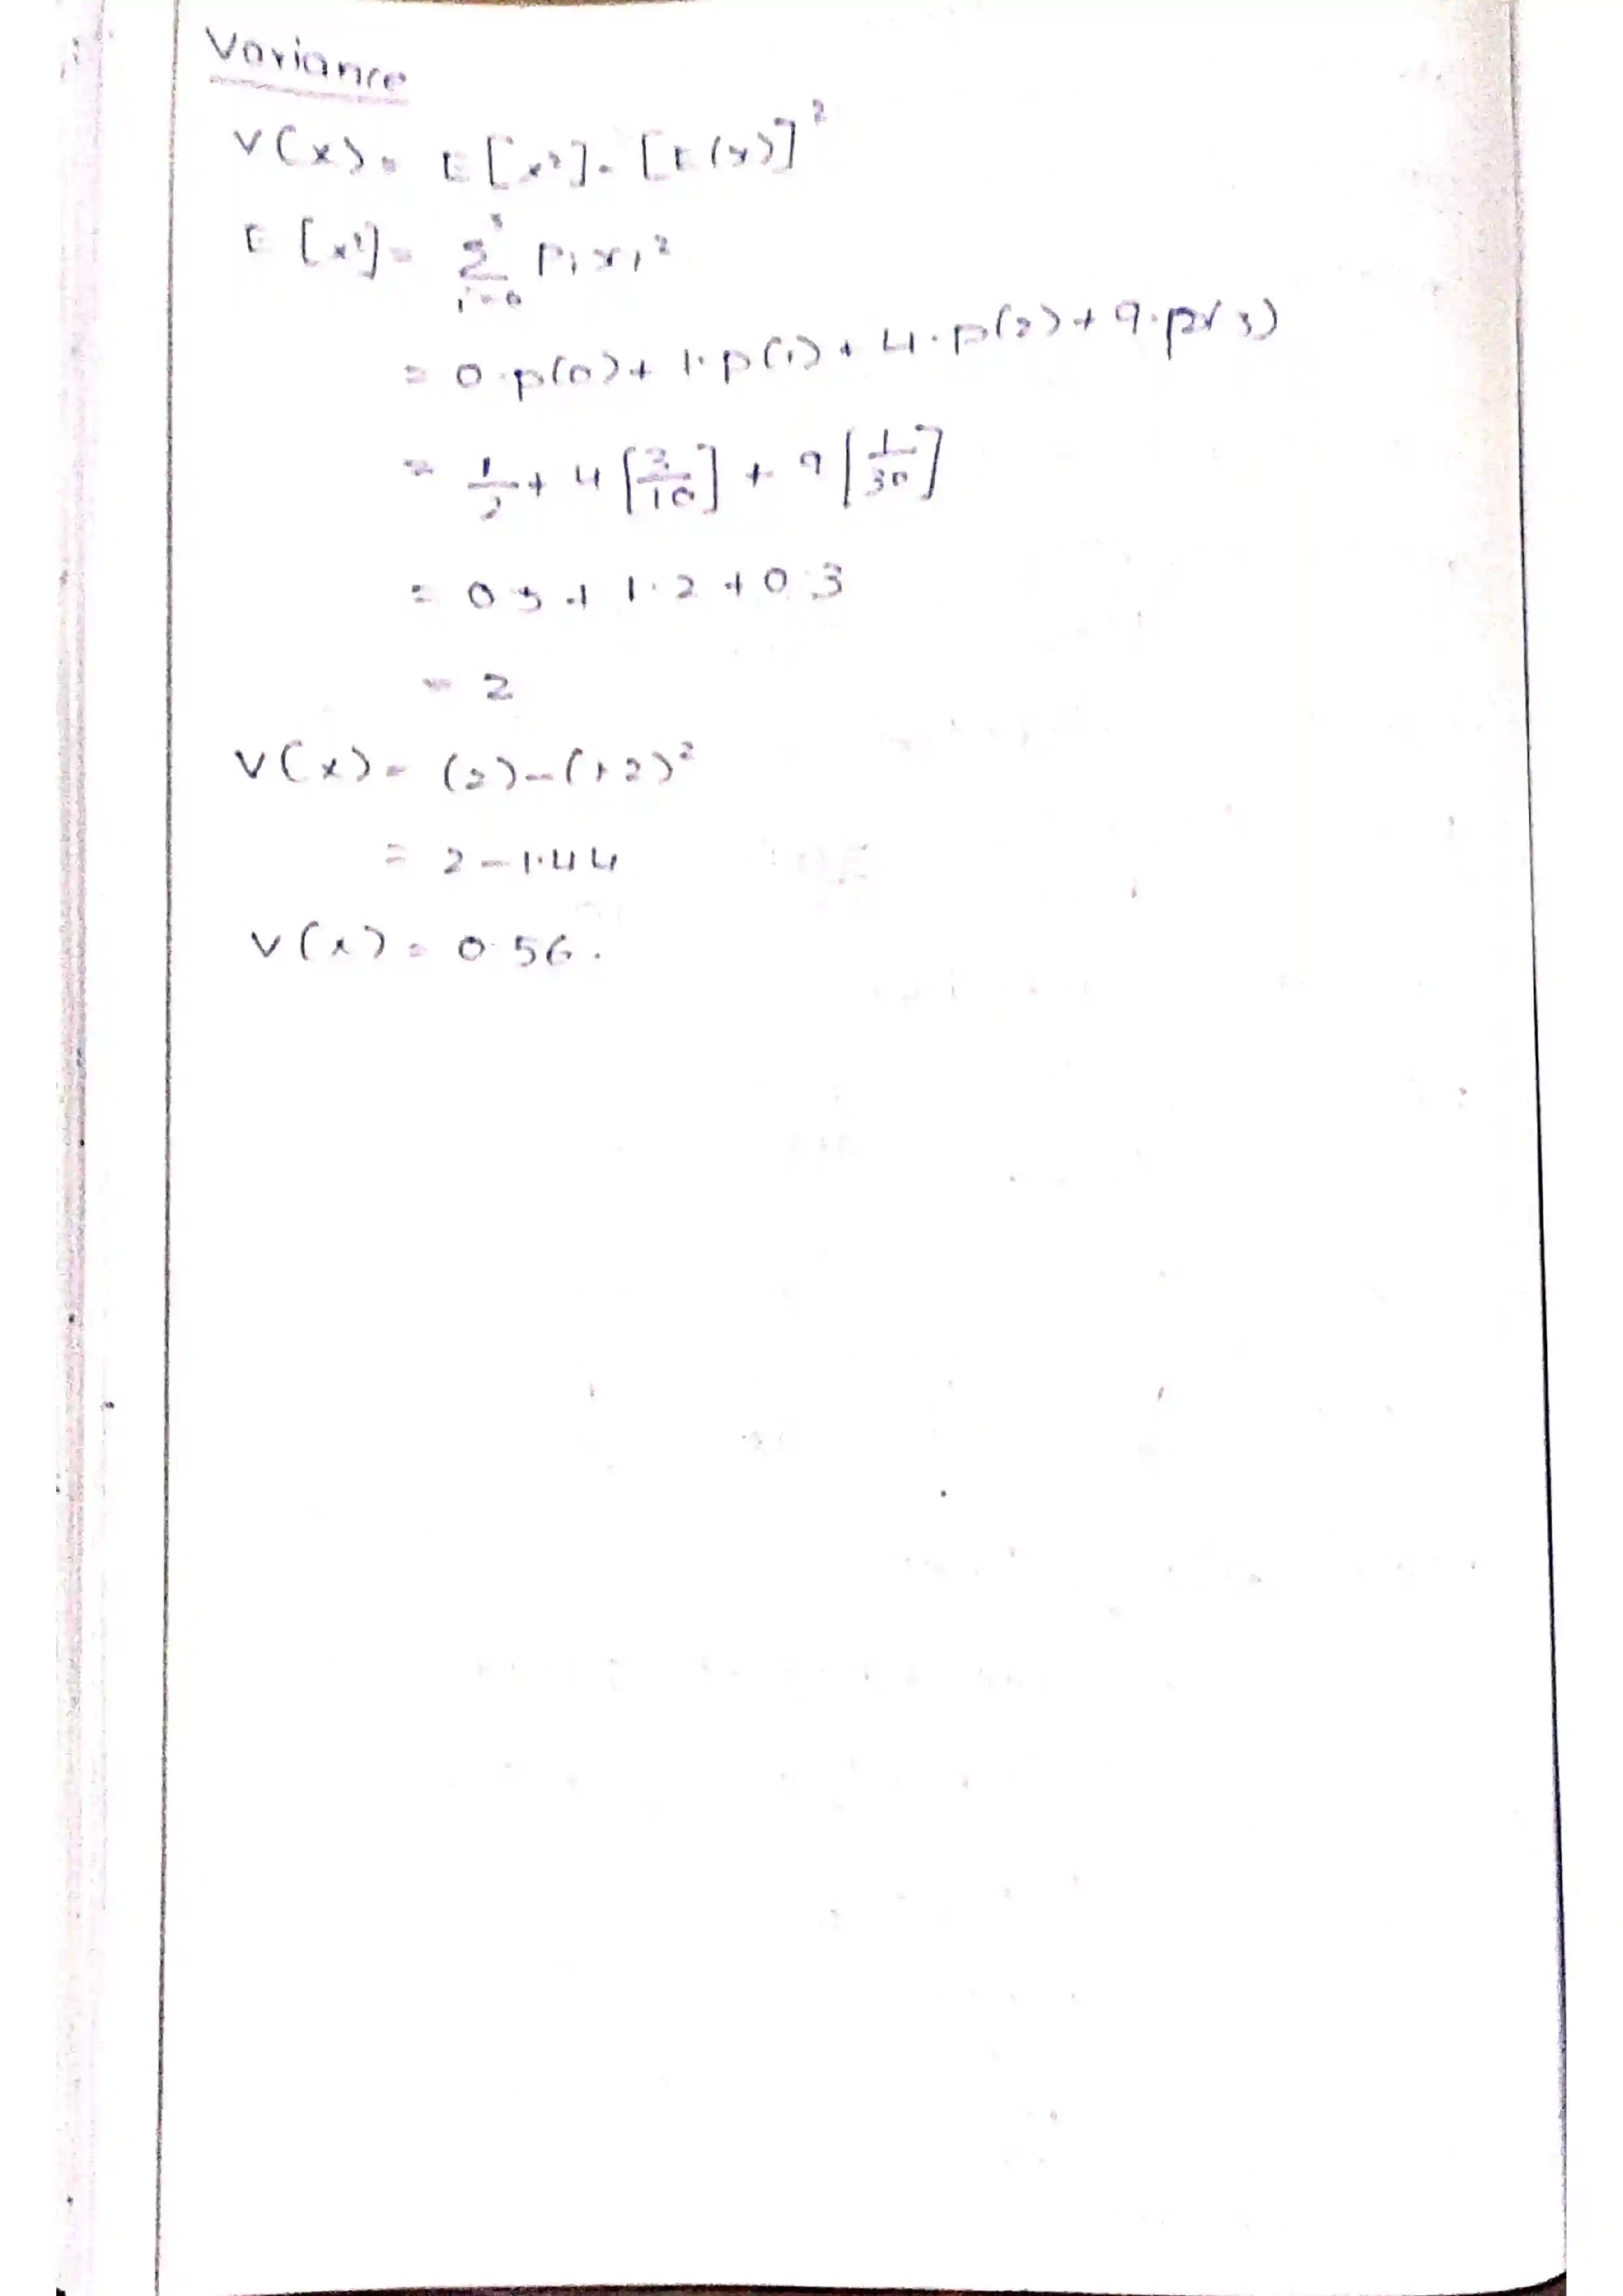 Variance
V(x) = E[x²] - [E(x)]²
E[x²] = Σ³ᵢ₌₀ pᵢxᵢ²
= 0·p(0) + 1·p(1) + 4·p(2) + 9·p(3)
= 1/2 + 4[3/10] + 9[1/30]
= 0.5 + 1.2 + 0.3
= 2
V(x) = (2) - (1.2)²
= 2 - 1.44
V(x) = 0.56.